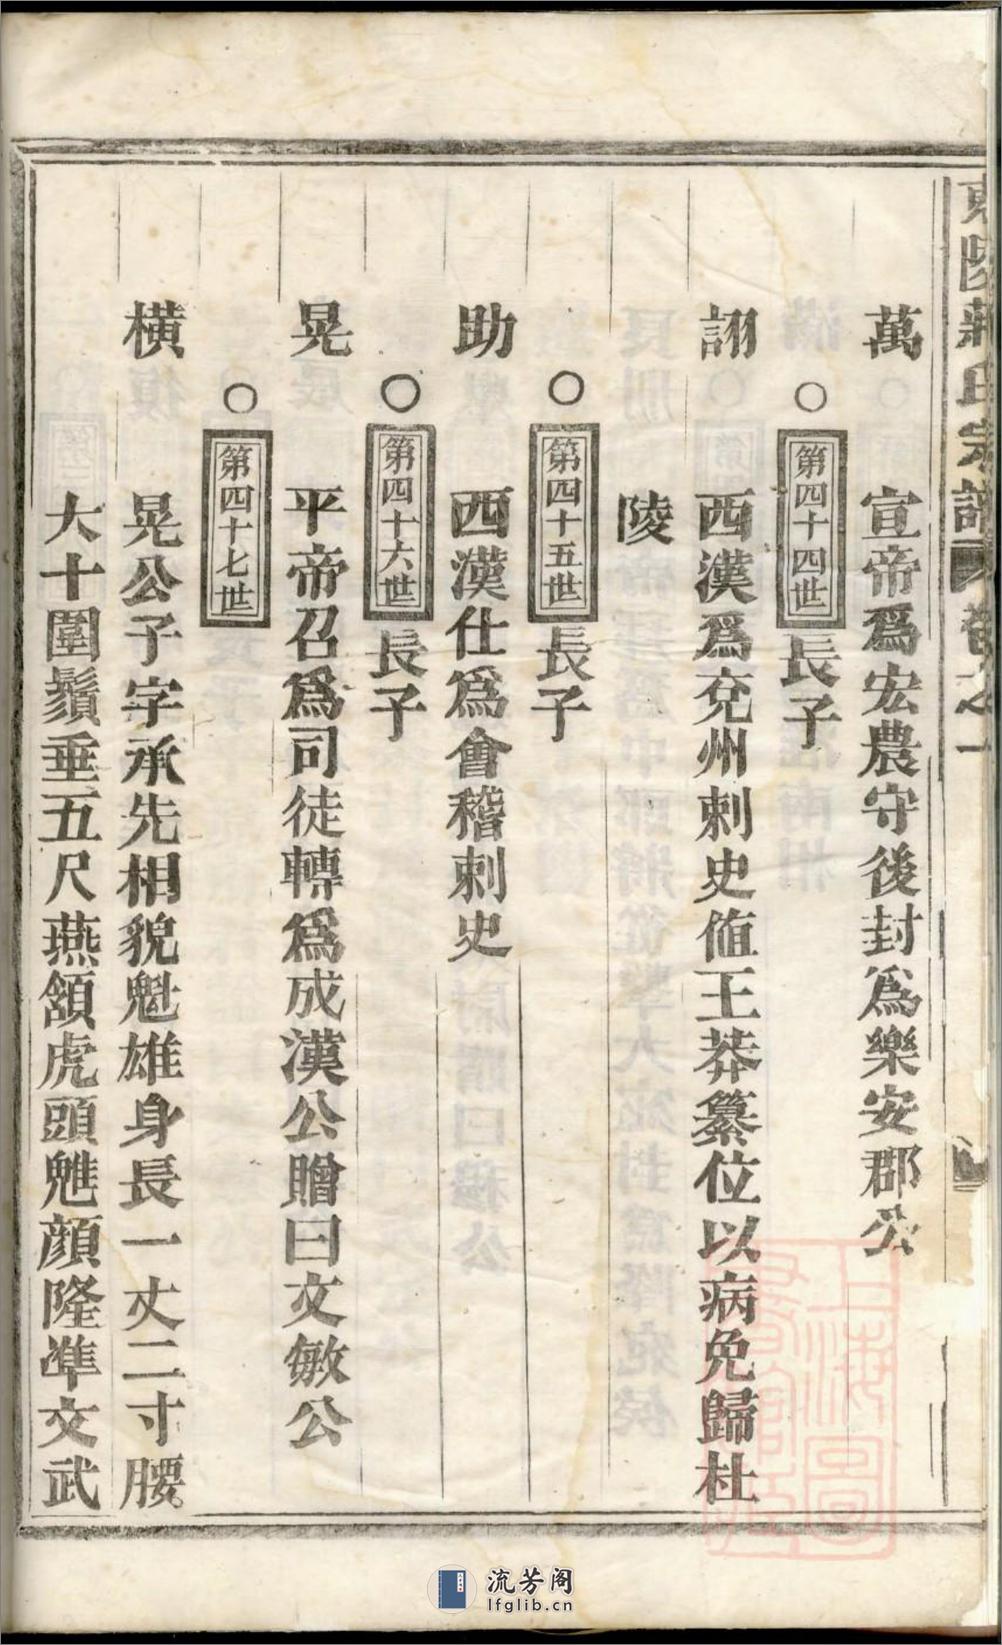 東陵蔣氏宗譜 卷之一
萬 宣帝爲宏農守後封爲樂安郡公
○第四十四世 長子
詡 西漢爲兗州刺史値王莽纂位以病免歸杜
陵
○第四十五世 長子
助 西漢仕爲會稽刺史
○第四十六世 長子
晃 平帝召爲司徒轉爲成漢公贈曰文敏公
○第四十七世
橫 晃公子字承先相貌魁雄身長一丈二寸腰
大十圍鬚垂五尺燕頷虎頭魋顔隆準文武
上海圖
流芳阁
lfglib.cn